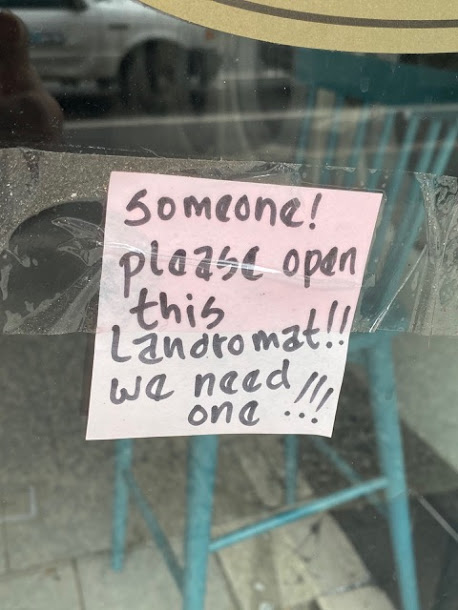 someone!
please open
this
Landromat!!
we need
one !!!